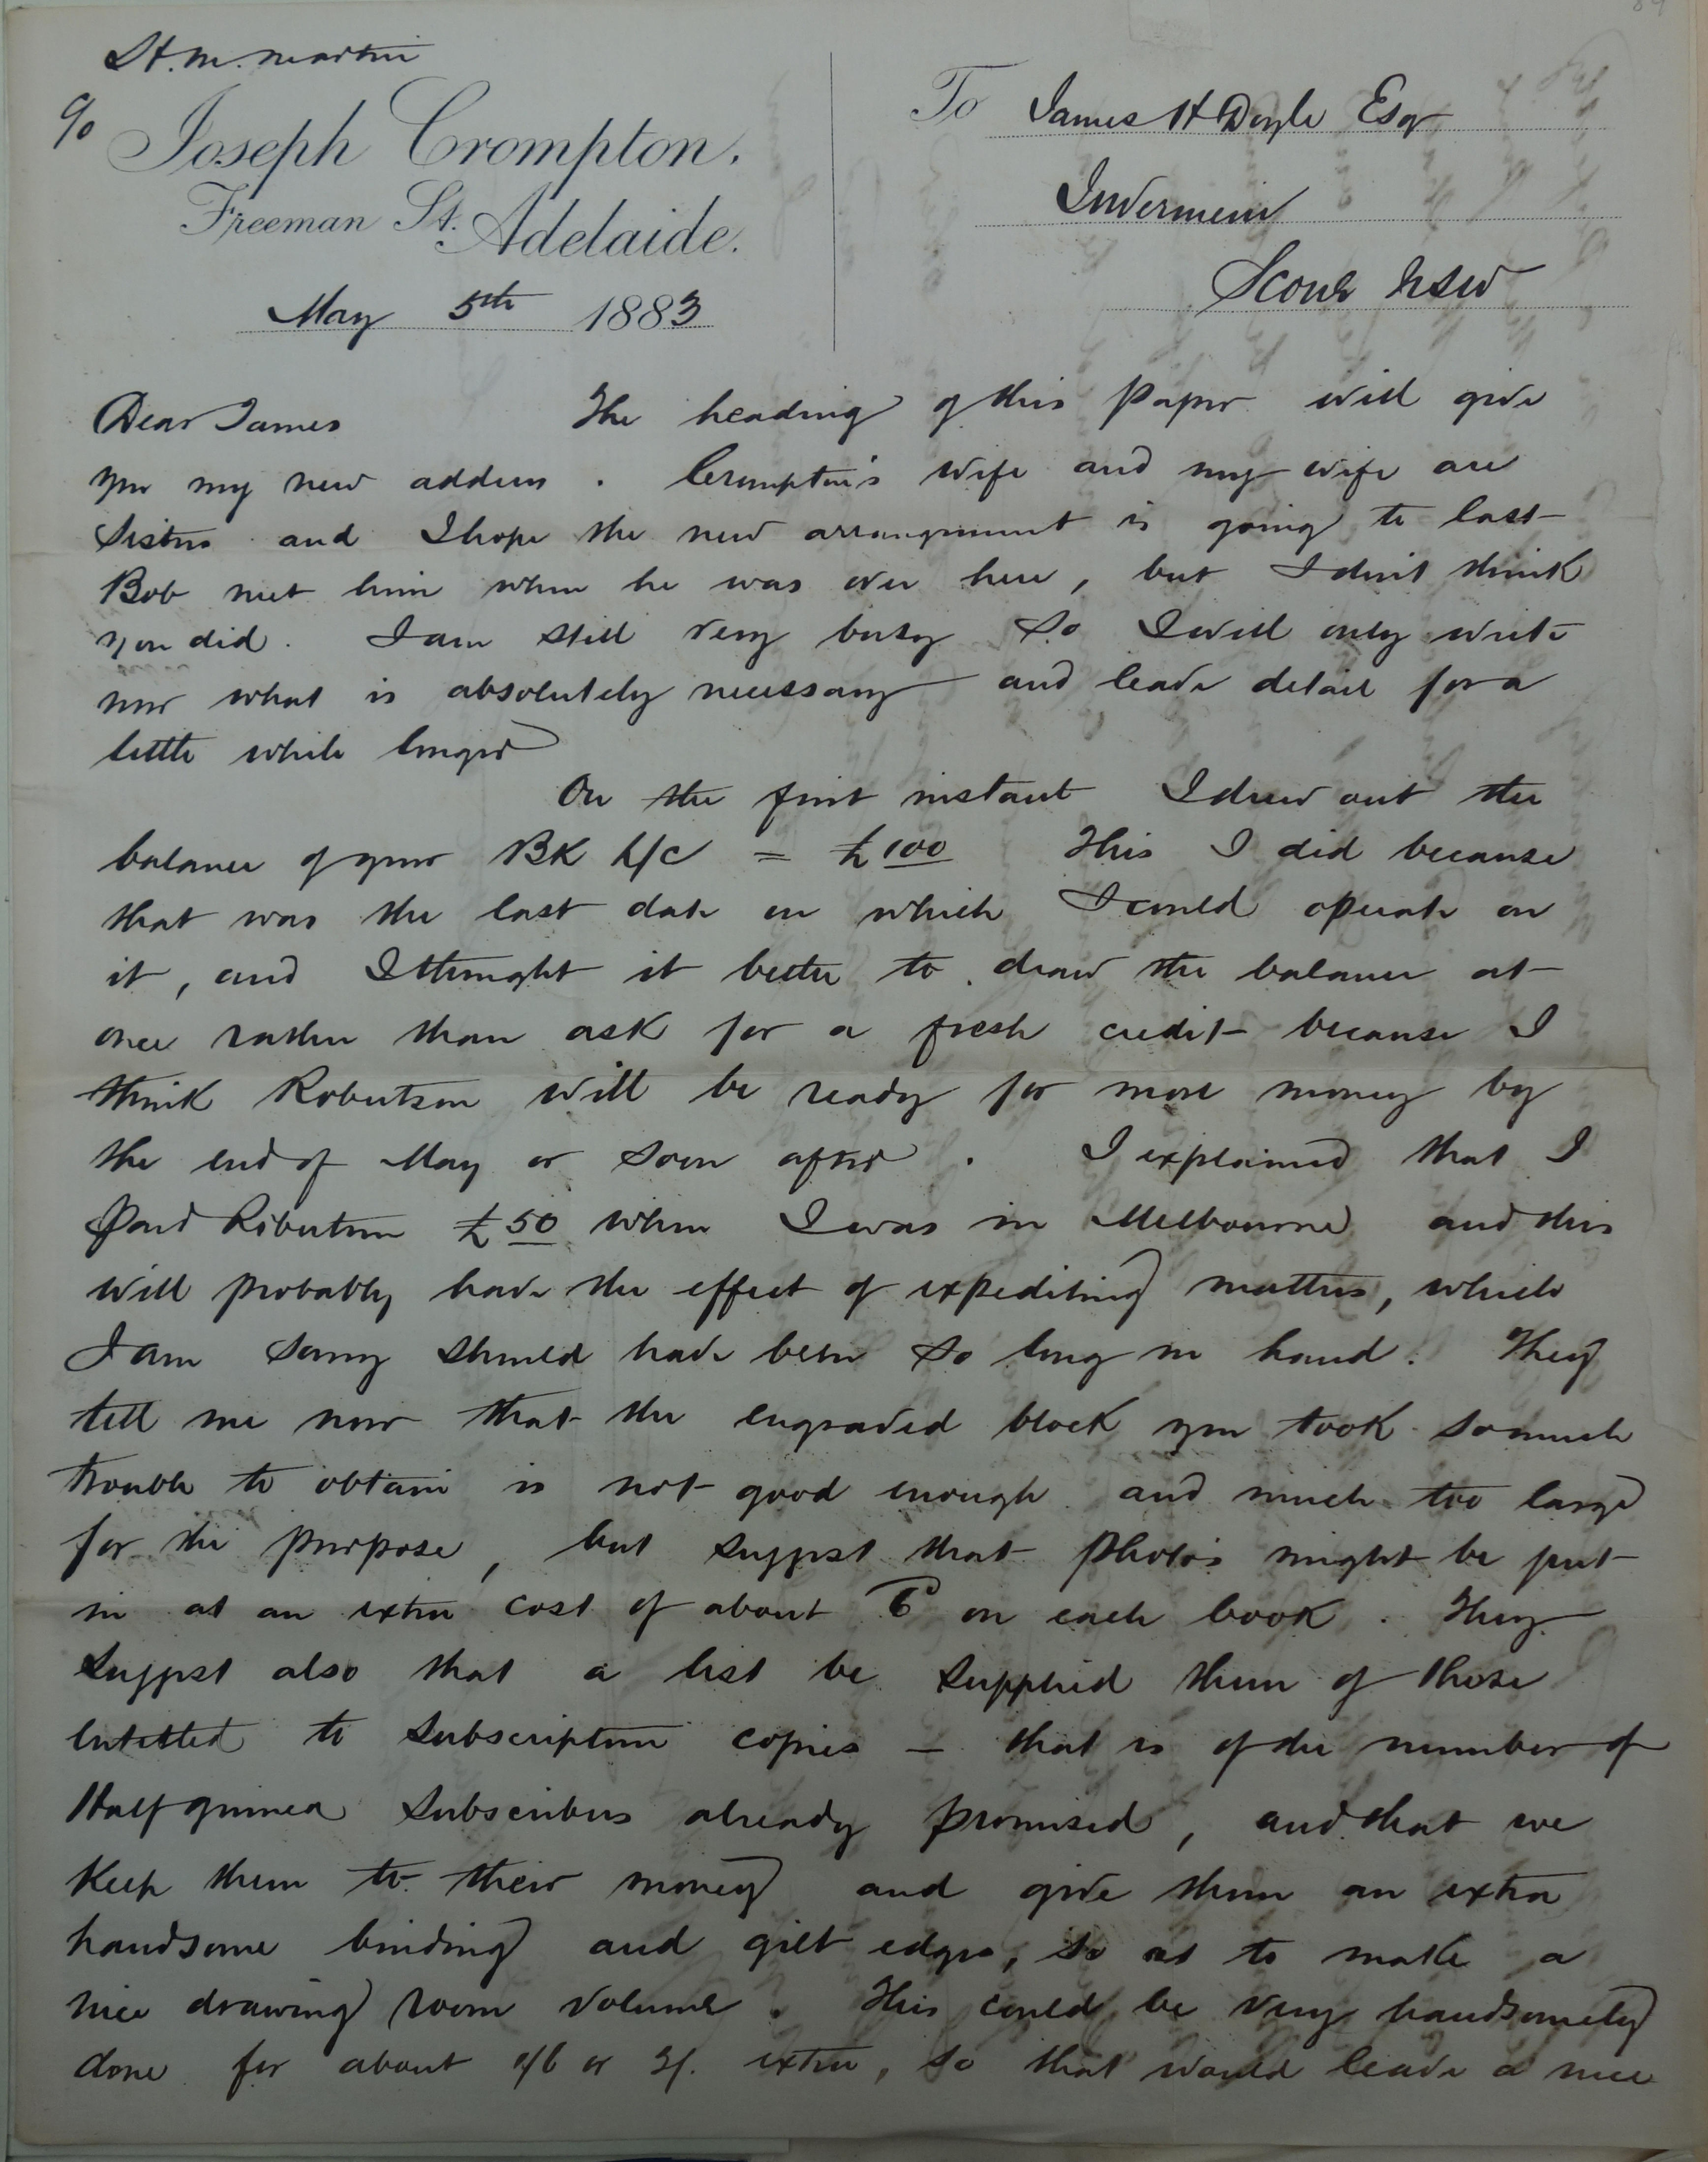 H. M. Martin
c/o Joseph Crompton.
Freeman St. Adelaide.
May 5th 1883
To James H Doyle Esqr
Invermein
Scone NSW
Dear James The heading of this paper will give
you my new address. Crompton's wife and my wife are
sisters and I hope the new arrangement is going to last
Bob met him when he was over here, but I don't think
you did. I am still very busy so I will only write
now what is absolutely necessary and leave detail for a
little while longer
On the first instant I drew out the
balance of your BK L/C = £100 This I did because
that was the last date on which I could operate on
it, and I thought it better to draw the balance at
once rather than ask for a fresh credit because I
think Robertson will be ready for more money by
the end of May or soon after. I explained that I
paid Robertson £50 when I was in Melbourne and this
will probably have the effect of expediting matters, which
I am sorry should have been so long in hand. They
tell me now that the engraved block you took so much
trouble to obtain is not good enough and much too large
for the purpose, but suggest that photo's might be put
in at an extra cost of about 6d on each book. They
suggest also that a list be supplied them of those
entitled to subscription copies – that is of the number of
Half guinea subscribers already promised, and that we
keep them to their money and give them an extra
handsome binding and gilt edges, so as to make a
nice drawing room volume. This could be very handsomely
done for about 2/6 or 3/. extra, so that would leave a nice